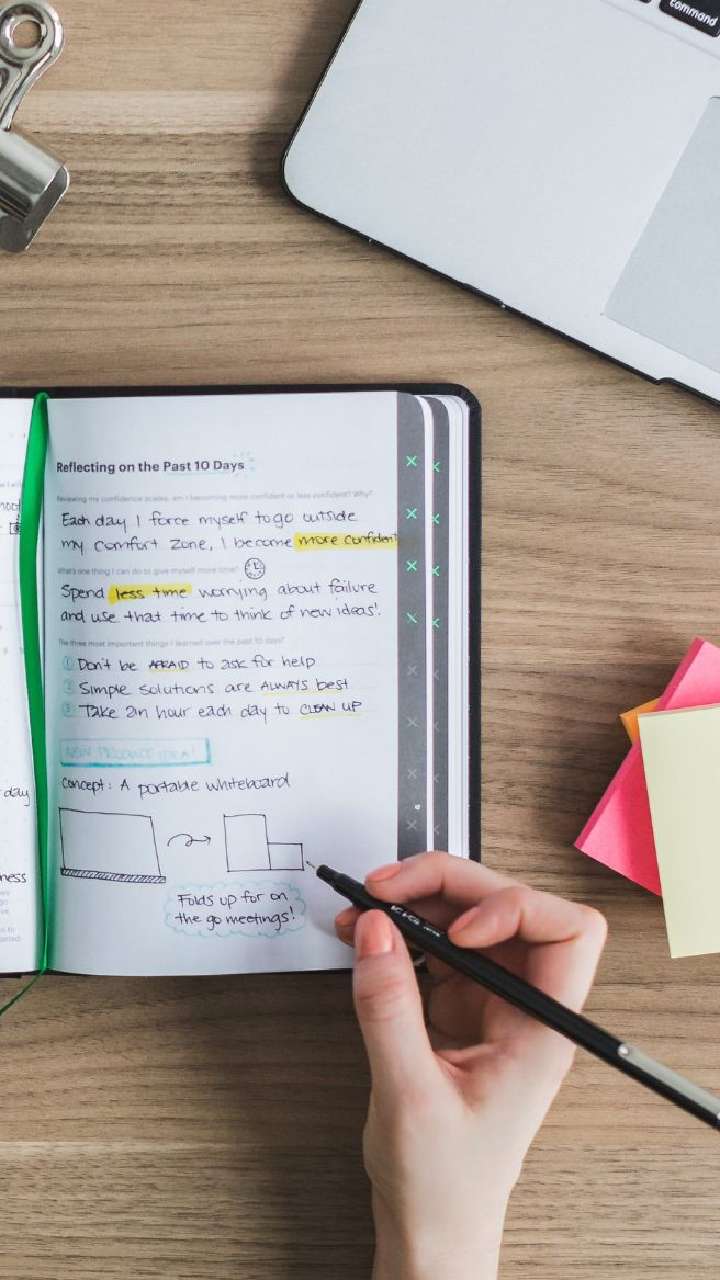 command
Reflecting on the Past 10 Days
Reviewing my confidence scales, am I becoming more confident or less confident? Why?
Each day I force myself to go outside
my comfort zone, I become more confident
What's one thing I can do to give myself more time?
Spend less time worrying about failure
and use that time to think of new ideas!
The three most important things I learned over the past 10 days?
1 Don't be AFRAID to ask for help
2 Simple solutions are ALWAYS best
3 Take an hour each day to CLEAN UP
NEW PRODUCT IDEA!
concept: A portable whiteboard
Folds up for on
the go meetings!
day
ness